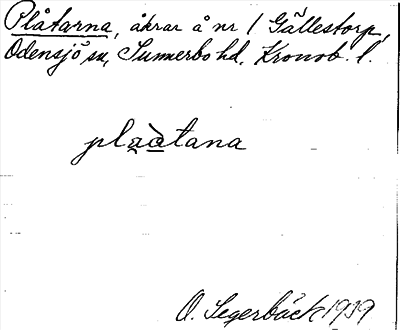 Plåtarna, åkrar å nr 1 Gällestorp,
Odensjö sn, Sunnerbo hd, Kronob. l.
plaàtana
O. Segerbäck 1939